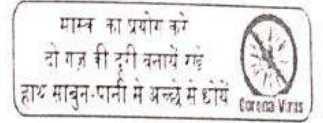 मास्क का प्रयोग करे
दो गज़ की दूरी बनाये रखे
हाथ साबुन-पानी से अच्छे से धोयें
Corona Virus